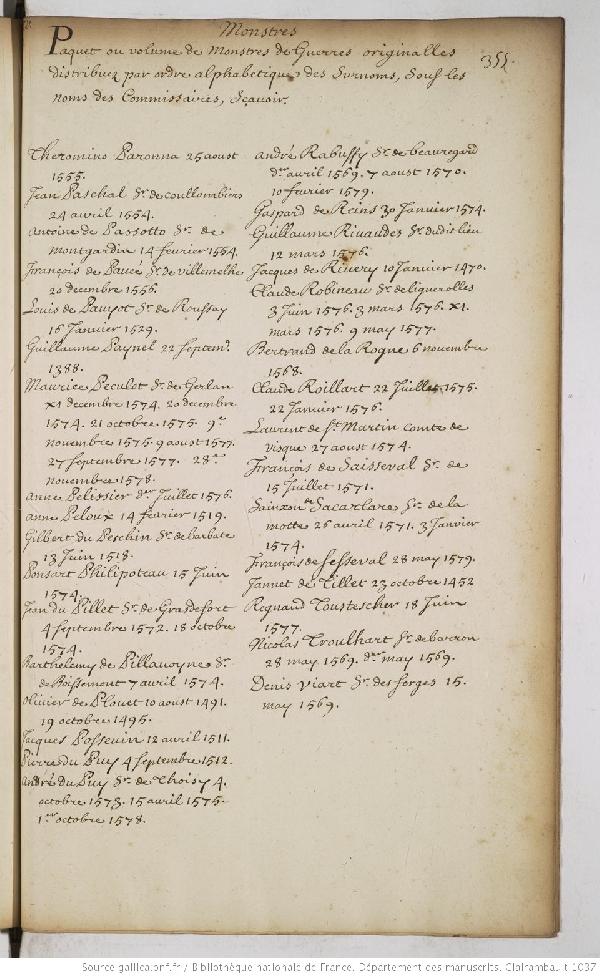 Monstres
Paquet ou volume de Monstres de Guerres originalles
distribuez par ordre alphabetique des Surnoms, Sous les
noms des Commissaires, Sçavoir.
355.
Theromino Paronna 25 aoust
1555.
Jean Paschal Sr. de coullombiers
24 avril 1554.
Antoine de Passotto Sr. de
montgardin 14 fevrier 1554.
François de Paucé Sr. de villemelhe
20 decembre 1556.
Louis de Pauyot Sr. de Roussay
16 Janvier 1529.
Guillaume Paynel 22 Septemb.
1388.
Maurice Peculet Sr. de Gerlan
XI decembre 1574. 20 decembre
1574. 21 octobre 1575. 9e.
novembre 1575. 9 aoust 1577.
27 Septembre 1577. 28me.
novembre 1578.
Anne Pelissier der. Juillet 1576.
Anne Peloux 14 fevrier 1519.
Gilbert du Perchin Sr. de barbate
13 Juin 1518.
Ponsart Philipoteau 15 Juin
1574.
Jean du Pillet Sr. de Grasdefort
4 Septembre 1572. 18 octobre
1574.
Barthelemy de Pillauoyne Sr.
de Boissement 7 avril 1574.
Olivier de Plouet 10 aoust 1491.
19 octobre 1495.
Jacques Posseuin 12 avril 1511.
Pierre du Puy 4 Septembre 1512.
André du Puy Sr. de Thoisy 4.
octobre 1573. 15 avril 1575.
1er octobre 1578.
André Rabuffy Sr. de beauregard
der. avril 1569. 7 aoust 1570.
10 fevrier 1579.
Gaspard de Reins 30 Janvier 1574.
Guillaume Rivaudes Sr. dudit lieu
12 mars 1576.
Jacques de Rivery 10 Janvier 1470.
Claude Robineau Sr. de liguerolles
3 Juin 1576. 3 mars 1576. XI.
mars 1576. 9 may 1577.
Bertrand de la Rogue 6 novembre
1568.
Claude Roillart 22 Juillet 1575.
22 Janvier 1576.
Laurent de St. Martin comte de
visque 27 aoust 1574.
François de Saisseval Sr. de
15 Juillet 1571.
Sainxon de Sacarlare Sr. de la
motte 26 avril 1571. 3 Janvier
1574.
François de Sesseval 28 may 1579.
Jannet de Tillet 23 octobre 1452
Regnaud Toustescher 18 Juin
1577.
Nicolas Troulhart Sr. de bacron
28 may 1569. der. may 1569.
Denis Viart Sr. des forges 15.
may 1569.
Source gallica.bnf.fr / Bibliothèque nationale de France. Département des manuscrits. Clairambault 1037